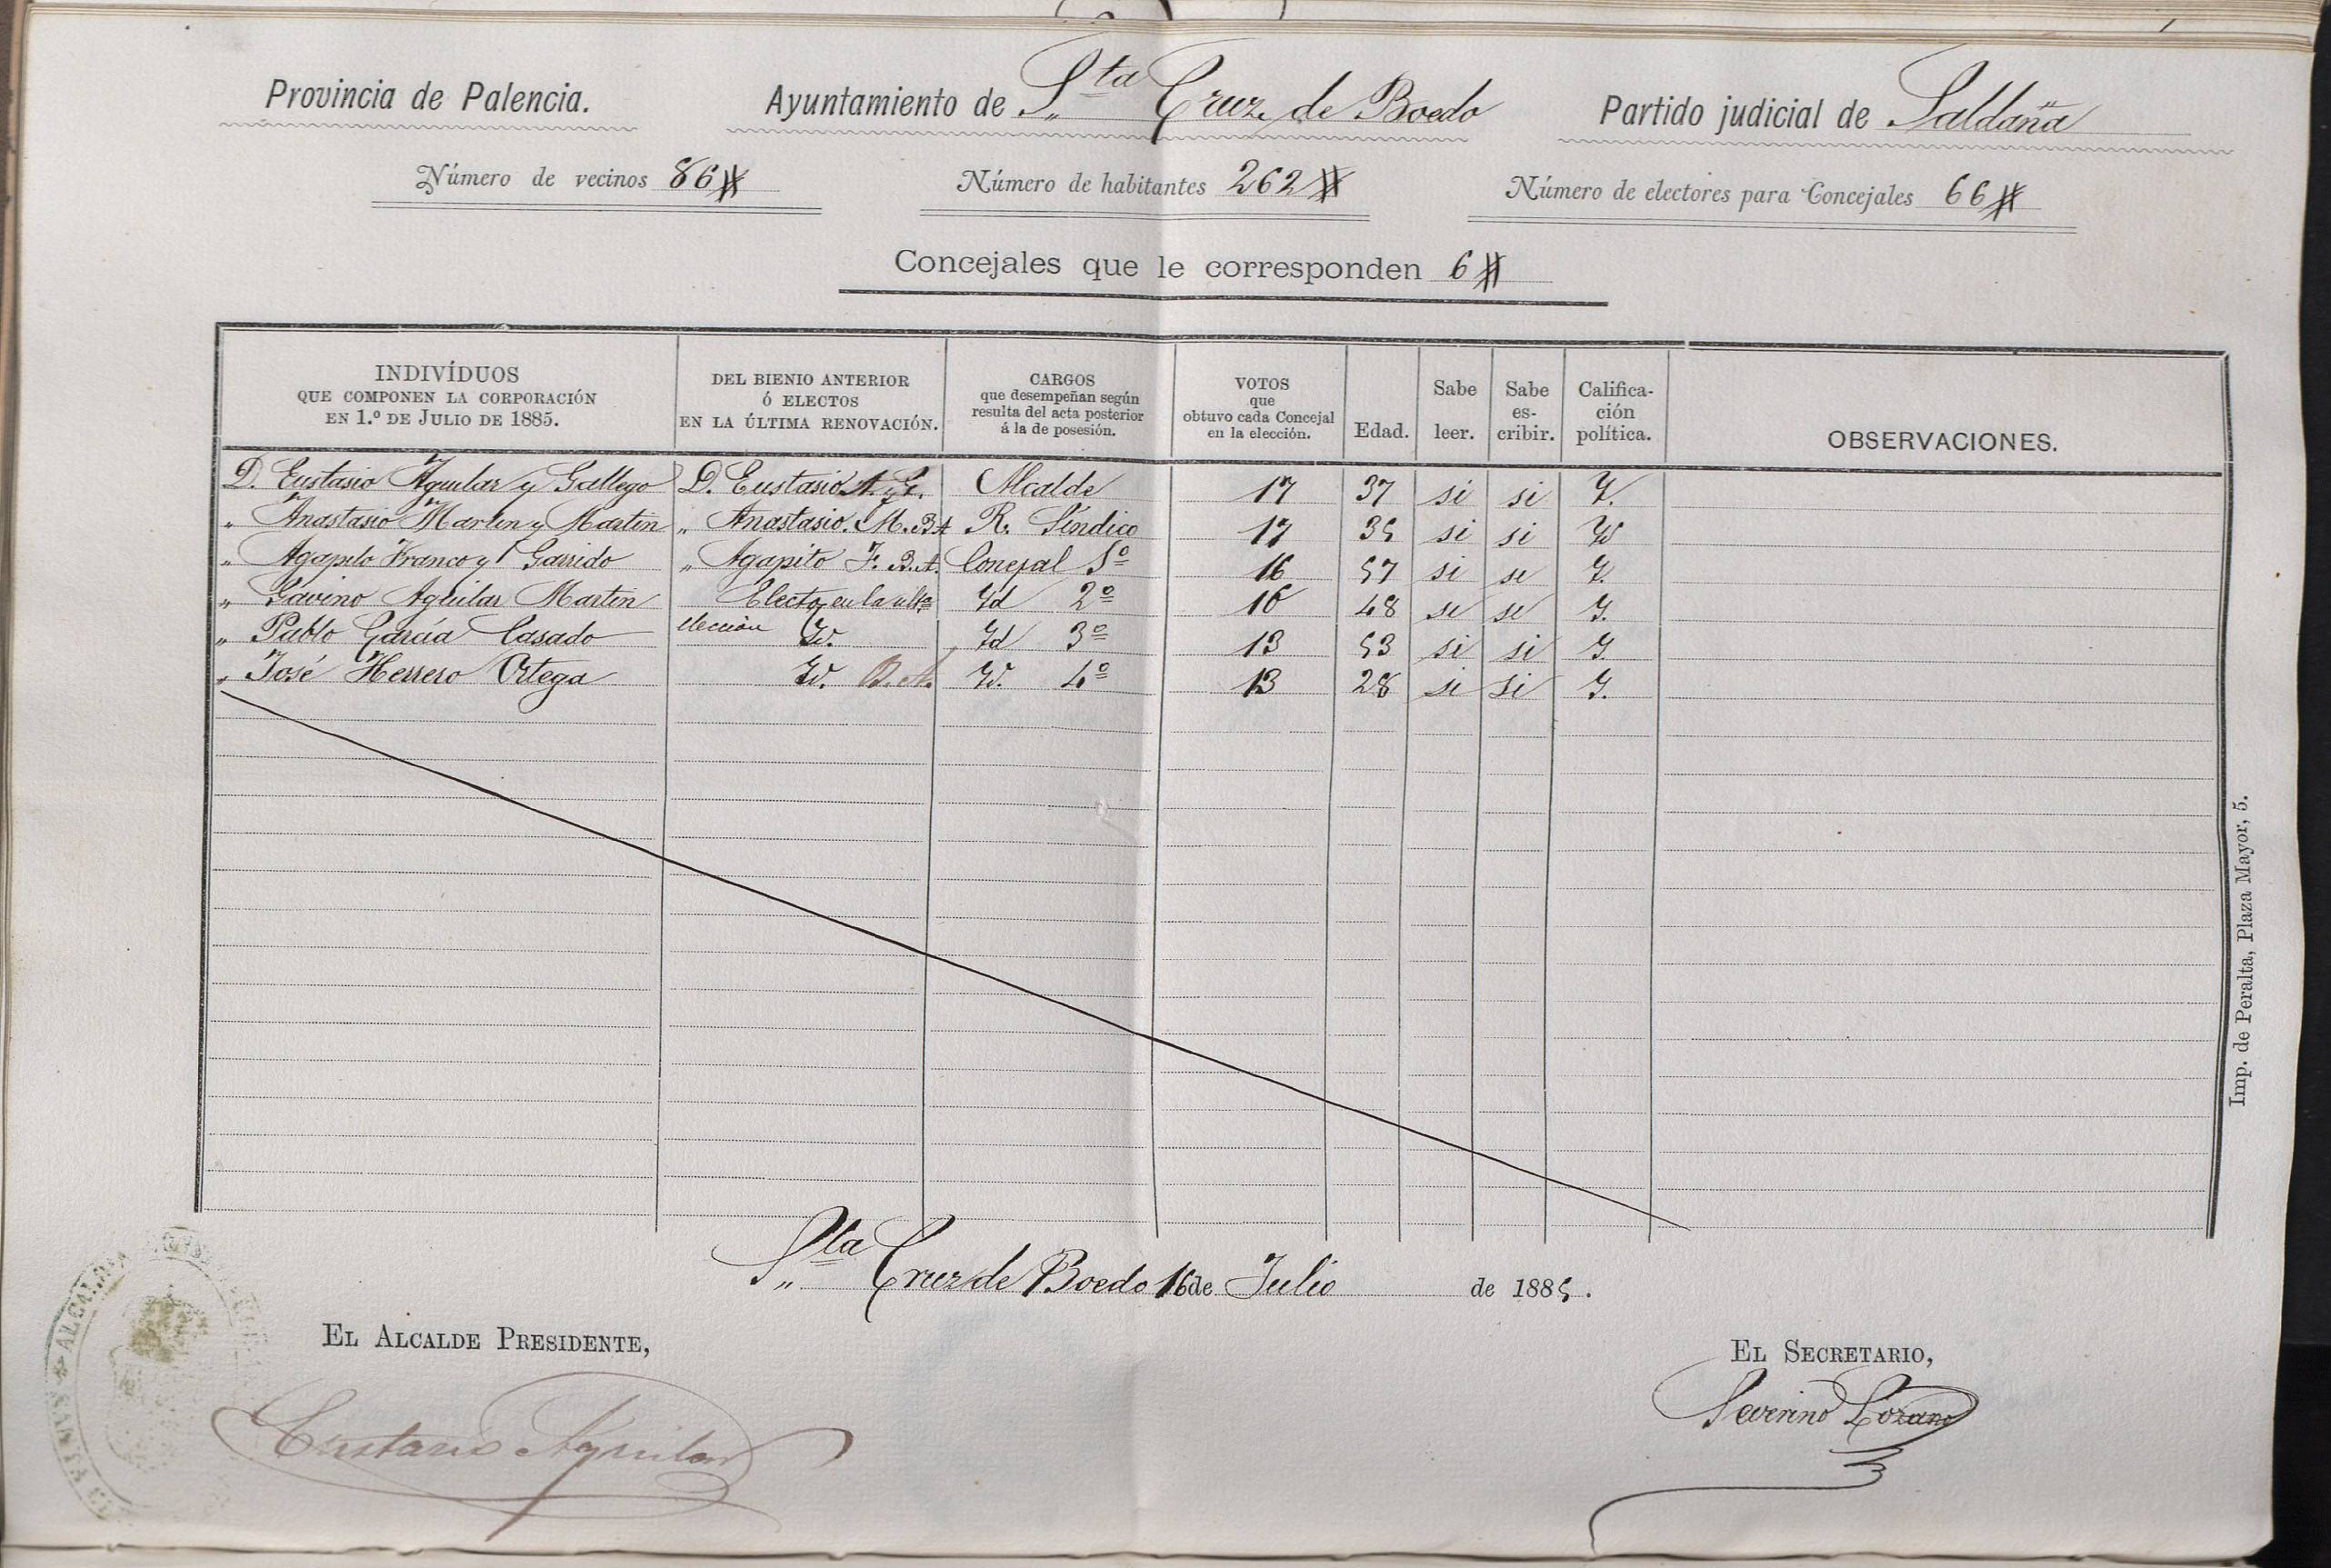 Provincia de Palencia. Ayuntamiento de Sta Cruz de Boedo Partido judicial de Saldaña
Número de vecinos 86 Número de habitantes 262 Número de electores para Concejales 66
Concejales que le corresponden 6
INDIVÍDUOS QUE COMPONEN LA CORPORACIÓN EN 1.º DE JULIO DE 1885. DEL BIENIO ANTERIOR Ó ELECTOS EN LA ÚLTIMA RENOVACIÓN. CARGOS que desempeñan según resulta del acta posterior á la de posesión. VOTOS que obtuvo cada Concejal en la elección. Edad. Sabe leer. Sabe es-cribir. Califica-ción política. OBSERVACIONES.
D. Eustasio Aguilar y Gallego D. Eustasio A. y G. Alcalde 17 37 si si Y.
„ Anastasio Martin y Martin „ Anastasio. M. B A R. Síndico 17 35 si si Yd
„ Agapito Franco y Garrido „ Agapito F. B. A. Concejal 1º 16 57 si si Y.
„ Gavino Aguilar Martin Electo en la ulta 2º 16 48 si si Y.
elección
„ Pablo García Casado Id. Id 3º 13 53 si si Y.
„ José Herrero Ortega Id. B. A. Id. 4º 13 28 si si Y.
Sta Cruz de Boedo 16 de Julio de 1885.
EL ALCALDE PRESIDENTE, EL SECRETARIO,
Eustasio Aguilar Severino Lozano
ALCALDIA
SANTA
Imp. de Peralta, Plaza Mayor, 5.